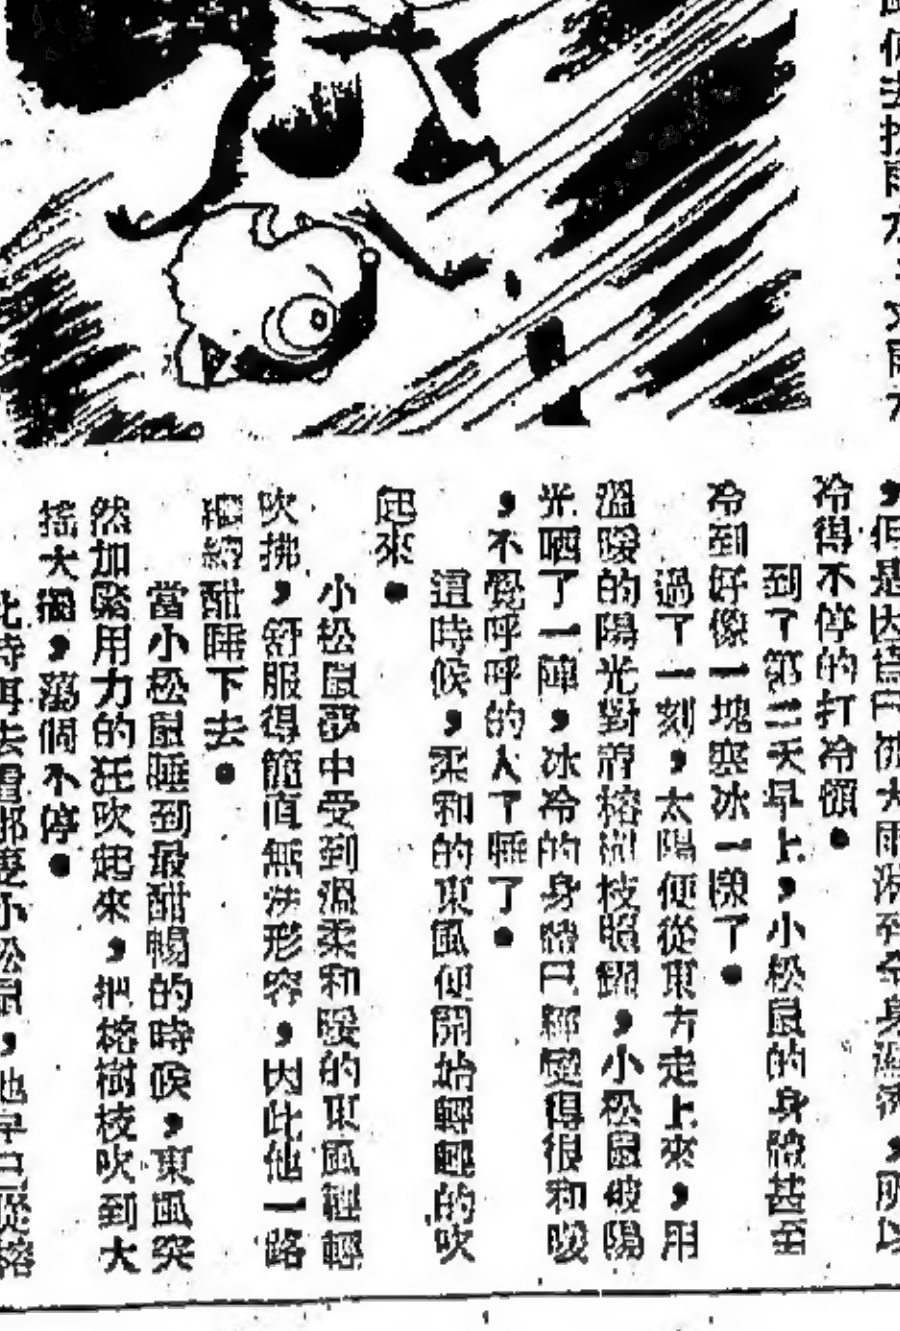 ，但是因為已被大雨淋到全身濕濟，所以
冷得不停的打冷顫。
到了第二天早上，小松鼠的身體甚至
冷到好像一塊寒冰一樣了。
過了一刻，太陽便從東方走上來，用
溫暖的陽光對着榕樹枝照耀，小松鼠被陽
光晒了一陣，冰冷的身體已經變得很和暖
，不覺呼呼的入了睡了。
這時候，柔和的東風便開始輕輕的吹
起來。
小松鼠夢中受到溫柔和暖的東風輕輕
吹拂，舒服得簡直無法形容，因此他一路
繼續酣睡下去。
當小松鼠睡到最酣暢的時候，東風突
然加緊用力的狂吹起來，把榕樹枝吹到大
搖大擺，萬個不停。
此時再去看那隻小松鼠，他早已從榕